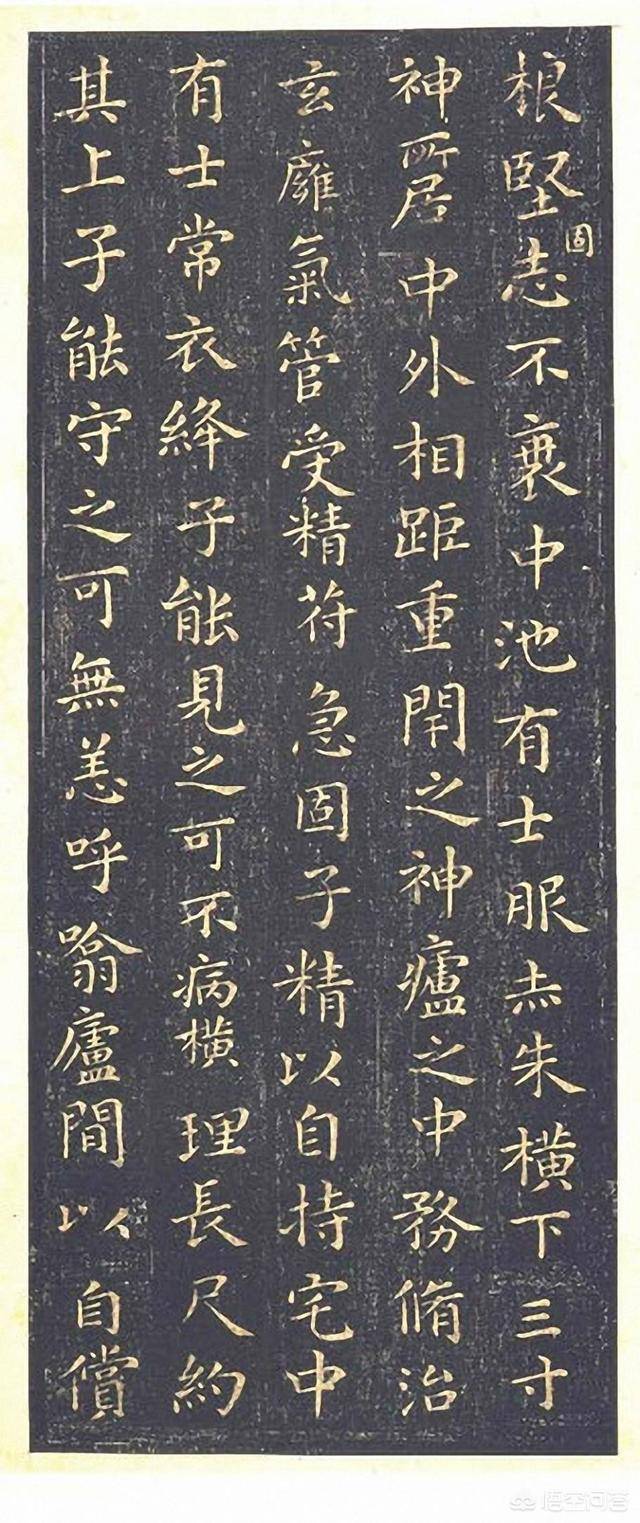 根堅固志不衰中池有士服赤朱橫下三寸
神所居中外相距重閇之神廬之中務脩治
玄廱氣管受精苻急固子精以自持宅中
有士常衣絳子能見之可不病橫理長尺約
其上子能守之可無恙呼噏廬間以自償
悟空问答